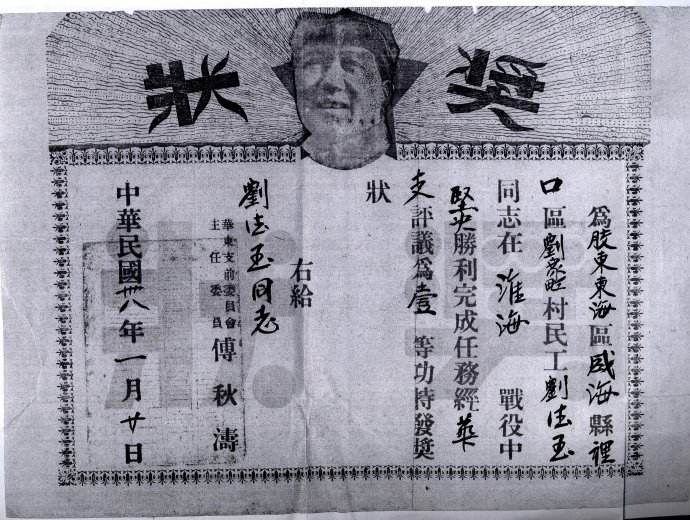 獎狀
爲胶東東海區威海縣裡
口區劉家疃村民工劉法玉
同志在淮海戰役中
堅決勝利完成任務經華
支評議爲壹等功特發獎
狀
右給
劉法玉同志
華東支前委員會
主任委員 傅秋濤
中華民國卅八年一月廿日